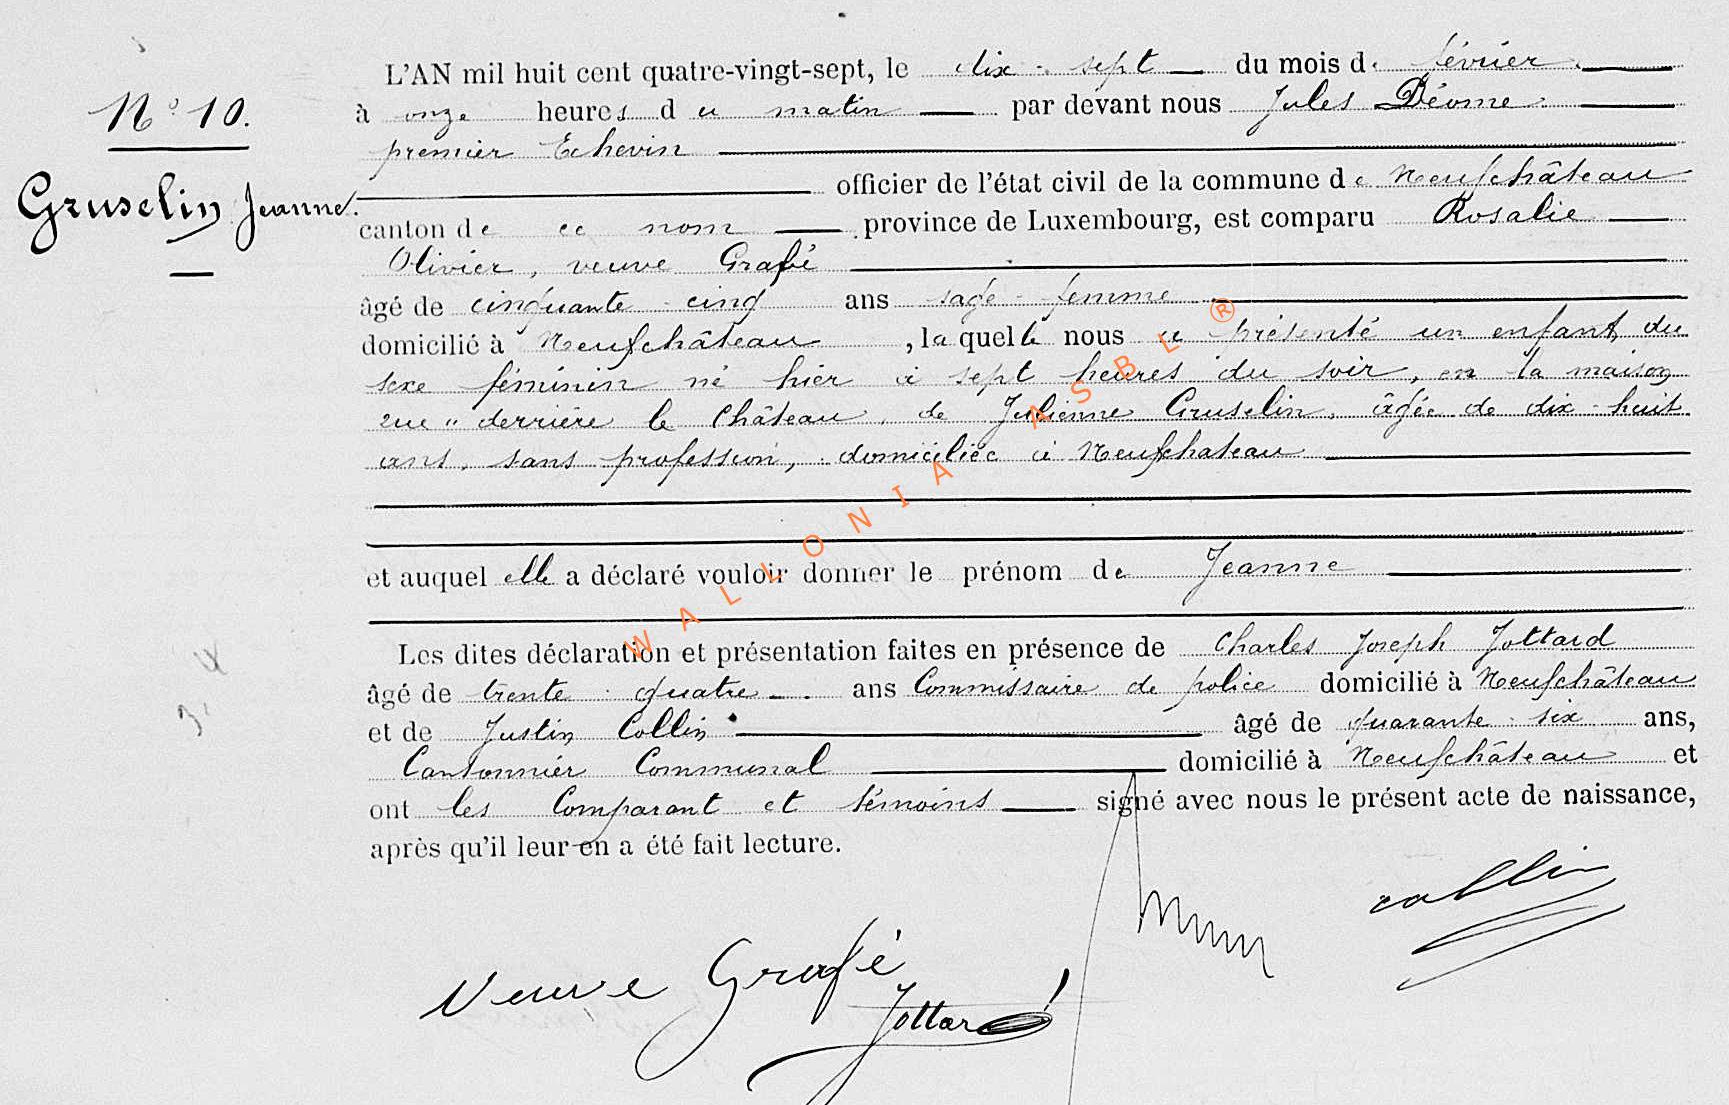 L'AN mil huit cent quatre-vingt-sept, le dix-sept du mois de février
N° 10.
à onze heures du matin par devant nous Jules Déome
premier Echevin
officier de l'état civil de la commune de Neufchâteau
Gruselin Jeanne.
canton de ce nom province de Luxembourg, est comparu Rosalie
Olivier, veuve Grafé
âgé de cinquante-cinq ans sage-femme
domicilié à Neufchâteau, laquelle nous a présenté un enfant du
sexe féminin né hier à sept heures du soir, en la maison
rue "derrière le Château, de Julienne Gruselin, âgée de dix-huit
ans, sans profession, domiciliée à Neufchateau
et auquel elle a déclaré vouloir donner le prénom de Jeanne
Les dites déclaration et présentation faites en présence de Charles Joseph Jottard
âgé de trente-quatre ans Commissaire de police domicilié à Neufchâteau
et de Justin Collin âgé de quarante-six ans,
Cantonnier Communal domicilié à Neufchâteau et
ont les Comparant et témoins signé avec nous le présent acte de naissance,
après qu'il leur en a été fait lecture.
Collin
Veuve Grafé
Jottard
WALLONIA ASBL ®